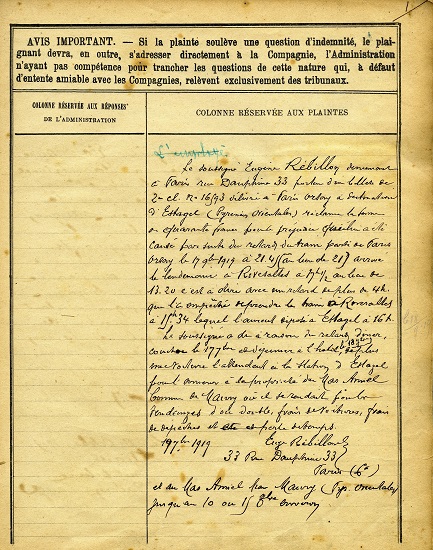 AVIS IMPORTANT. — Si la plainte soulève une question d'indemnité, le plai-
gnant devra, en outre, s'adresser directement à la Compagnie, l'Administration
n'ayant pas compétence pour trancher les questions de cette nature qui, à défaut
d'entente amiable avec les Compagnies, relèvent exclusivement des tribunaux.
COLONNE RÉSERVÉE AUX RÉPONSES
DE L'ADMINISTRATION
COLONNE RÉSERVÉE AUX PLAINTES
Le soussigné Eugène Rébillon demeurant
à Paris rue Dauphine 33 porteur d'un billet de
2e cl. no 16193 délivré à Paris orsay à destination
d'Estagel (Pyrénées Orientales) réclame la somme
de quarante francs pour préjudice qui lui a été
causé par suite du retard du train parti de Paris
Orsay le 17 9bre 1919 à 21.45 (au lieu de 21h) arrivé
le lendemain à Rivesaltes à 17h 1/2 au lieu de
13.20 c'est à dire avec un retard de plus de 4h.
que l'a empêché de prendre le train à Rivesaltes
à 15h34 lequel l'aurait déposé à Estagel à 16h.
Le soussigné a dû à raison du retard, dîner,
coucher le 17 7bre et déjeuner à l'hôtel, le 18 7bre de plus
une voiture l'attendait à la station d'Estagel
pour l'amener à la propriété du Mas Amiel
Commune de Maury où il se rendait pour les
vendanges d'où double frais de voitures, frais
de dépêches et perte de temps.
1919 Eug Rébillon
33 Rue Dauphine 33
Paris (6e)
et au Mas Amiel par Maury (Pyr. Orientales)
jusqu'au 10 ou 15 8bre environ